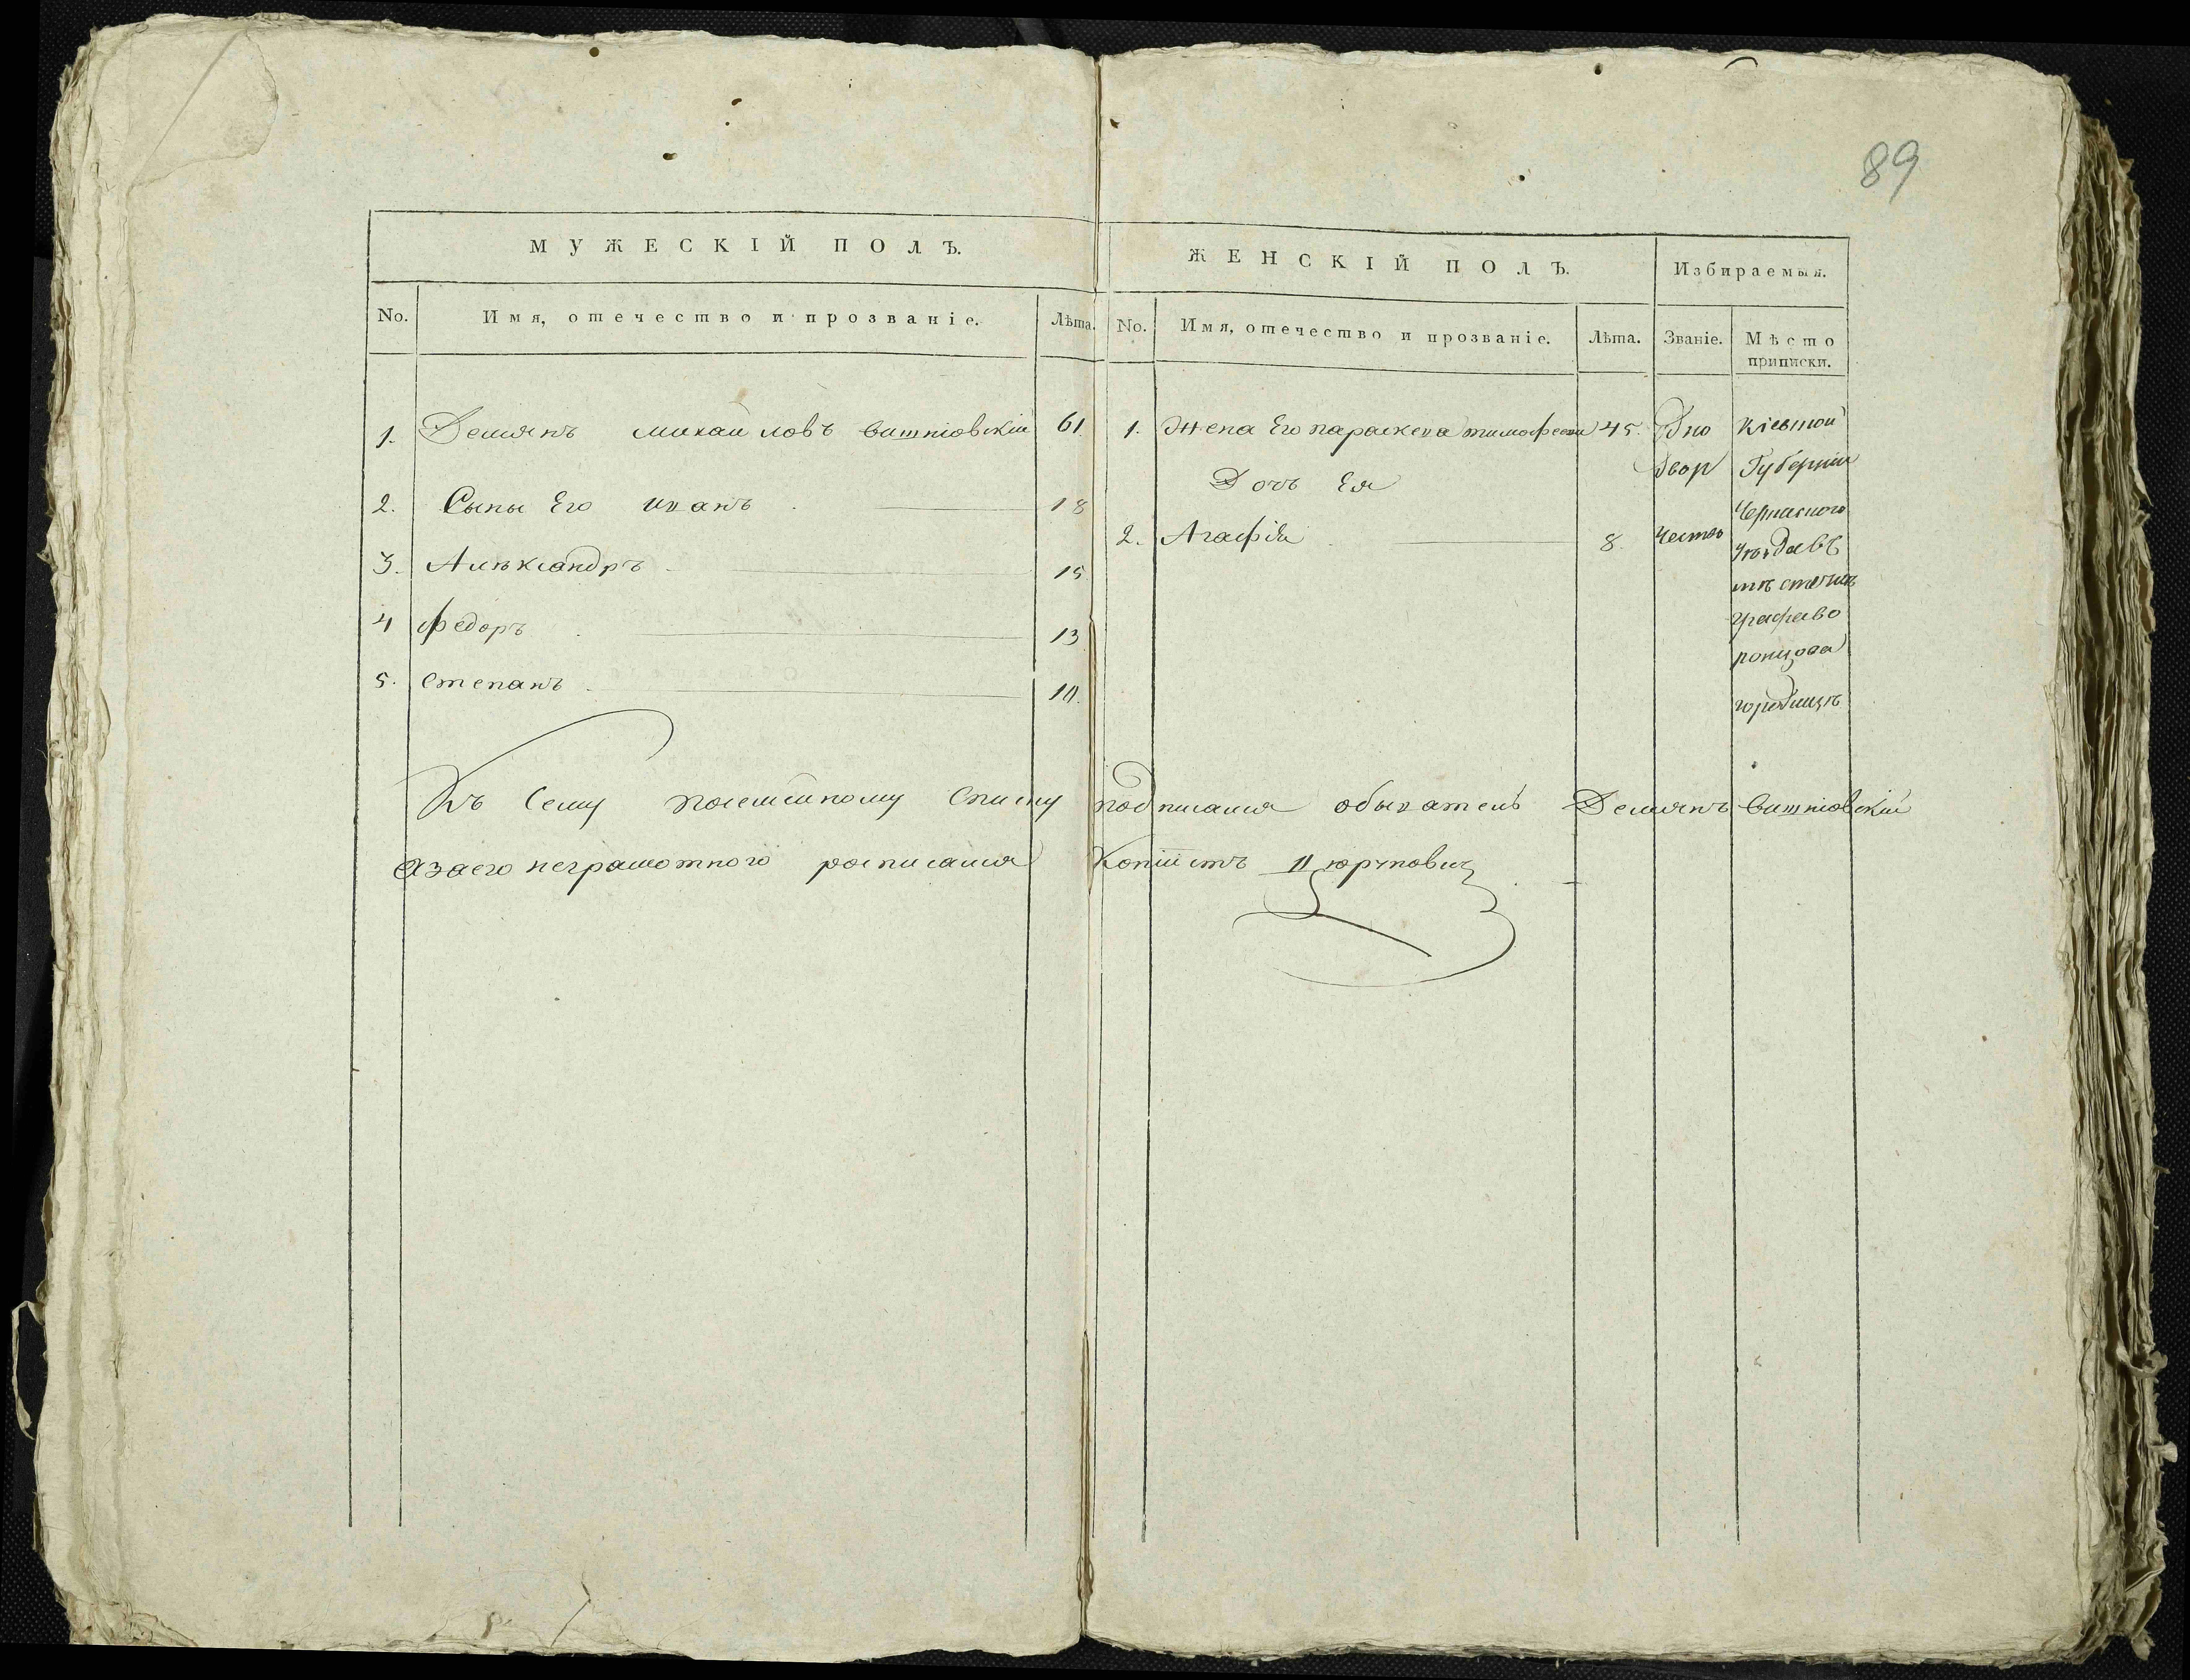 89
МУЖЕСКІЙ ПОЛЪ.
No. Имя, отечество и прозваніе. Лѣта.
1. Демянъ михайловъ вишніовскій 61
2. Сыны Его иванъ 18
3. Александръ 15
4 федоръ 13
5. степанъ 10.
ЖЕНСКІЙ ПОЛЪ. Избираемыя.
No. Имя, отечество и прозваніе. Лѣта. Званіе. Мѣсто
приписки.
1. Жена Его параскева тимофеева 45.
Дочь Ея
2. Агафія 8.
Одно
двор
чество
Кіевской
Губерніи
Черкаского
уѣзда въ
мѣстечкѣ
графа во
ронцова
городищѣ
Къ сему посемейному списку подписался обыватель Демянъ вишніовскій
а за его неграмотного росписался Копіистъ